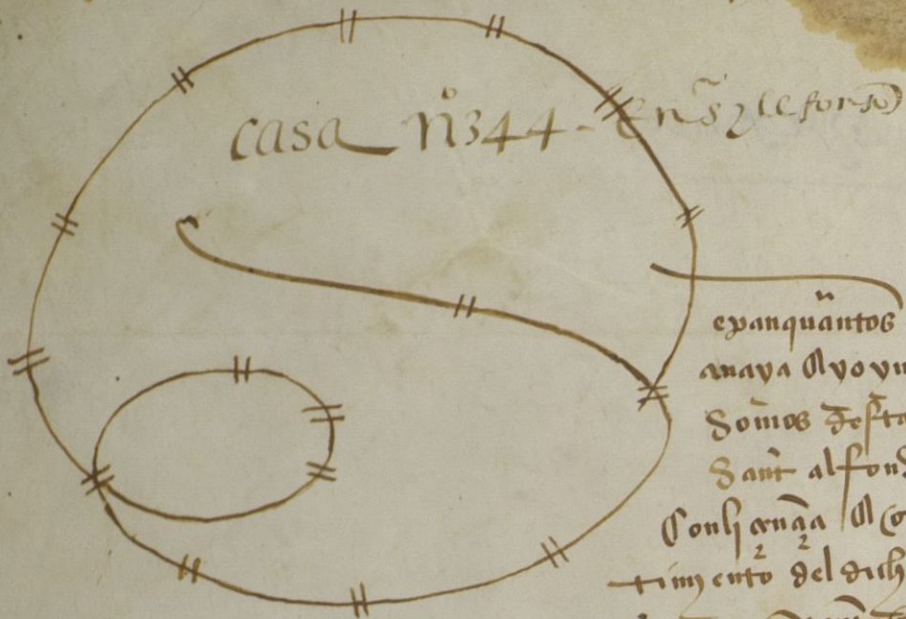 casa nº 344 - en S Ylefonso
epanquantos
anaya A yo yn
Somos desta
Sant alfons
Con liçençia A co
timiento del dich